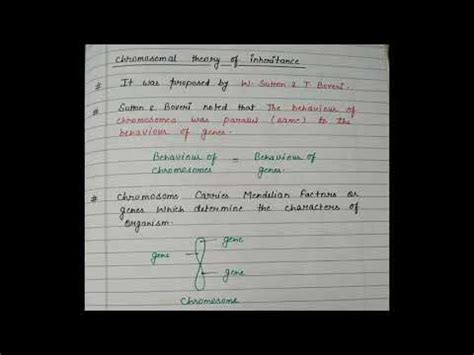 Chromosomal theory of inheritance
# It was proposed by W. Sutton & T. Boveri.
# Sutton & Boveri noted that The behaviour of
chromosomes was parallel (same) to the
behaviour of genes.
Behaviour of = Behaviour of
chromosomes genes.
# Chromosome Carries Mendelian Factors or
genes which determine the characters of
Organism.
gene
gene
gene
Chromosome